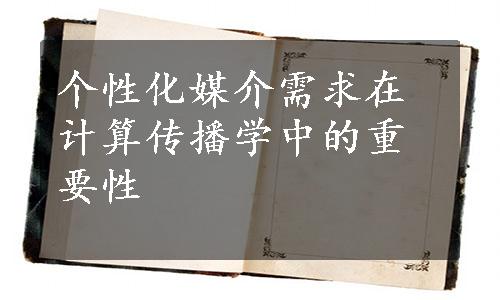 个性化媒介需求在
计算传播学中的重
要性